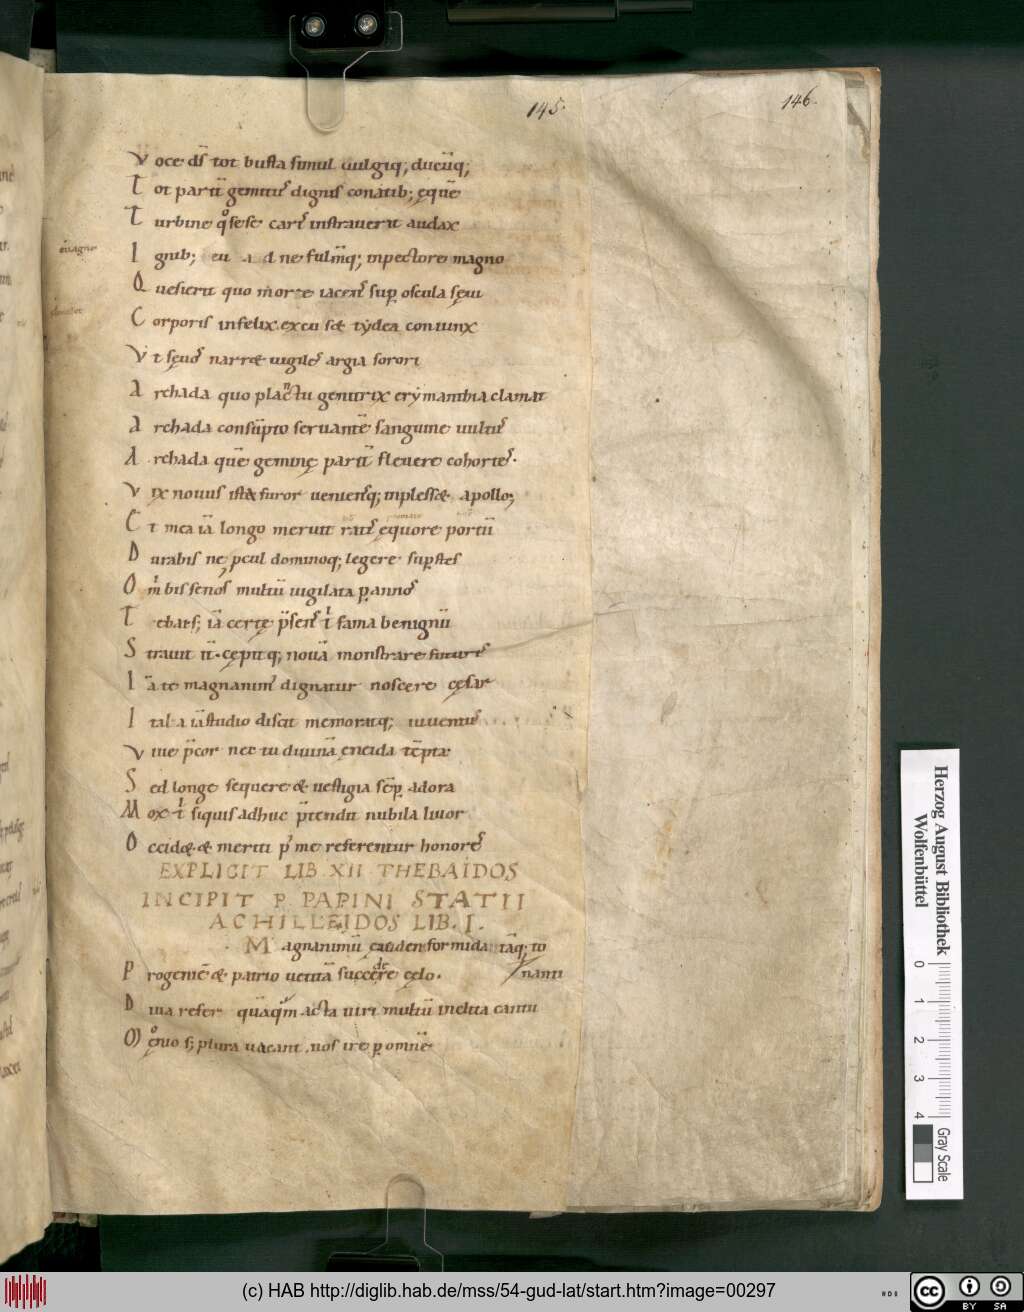 145. 146.
Voce ds̄ tot busta simul uulgiq; ducūq;
Tot partū gemitus dignis conatib; ęquē
Turbine quo sese caris instrauerit audax
Ignib; eu ne fulm̄q; inpectore magno
Quesierit quo more iacens sup̄ oscula sęui
Corporis infelix excuset tẏdea coniunx
Vt sęuos narret uigiles argia sorori
Archada quo planctu genitrix erẏmanthia clamat
Archada consūpto seruantē sanguine uultus
Archada quē geminę paritī fleuere cohortes.
Vix nouus iste furor ueniensq; inplesset apollo;
Et mea iā longo meruit ratis ęquore portū
Durabis ne ꝓcul dominoq; legere sup̄stes
O m bis senos multū uigilata ꝑ annos
Tebais; iā certe p̄sens t fama benignū
Strauit it̄. cępitq; nouā monstrare futuris
Iā te magnanim dignatur noscere cęsar
Itala iā studio discit memoratq; iuuentus
Viue p̄cor nec tu diuinā ęneida tēpta
Sed longe sequere & uestigia sēp̄ adora
Mox t siquis adhuc p̄tendit nubila liuor
Occidet & meriti p me referentur honores
EXPLICIT LIB XII THEBAIDOS
INCIPIT P. PAPINI STATII
ACHILLEIDOS LIB. I.
Magnanimū eaciden formidatāq; to
Progeniē & patrio uetitā succedere cęlo. nanti
Diua refer quāquam acta uiri multū inclita cantu
Meonio s; plura uacant nos ire ꝑ omnē
Herzog August Bibliothek
Wolfenbüttel
0 1 2 3 4
Gray Scale
(c) HAB http://diglib.hab.de/mss/54-gud-lat/start.htm?image=00297
HAB
cc BY SA